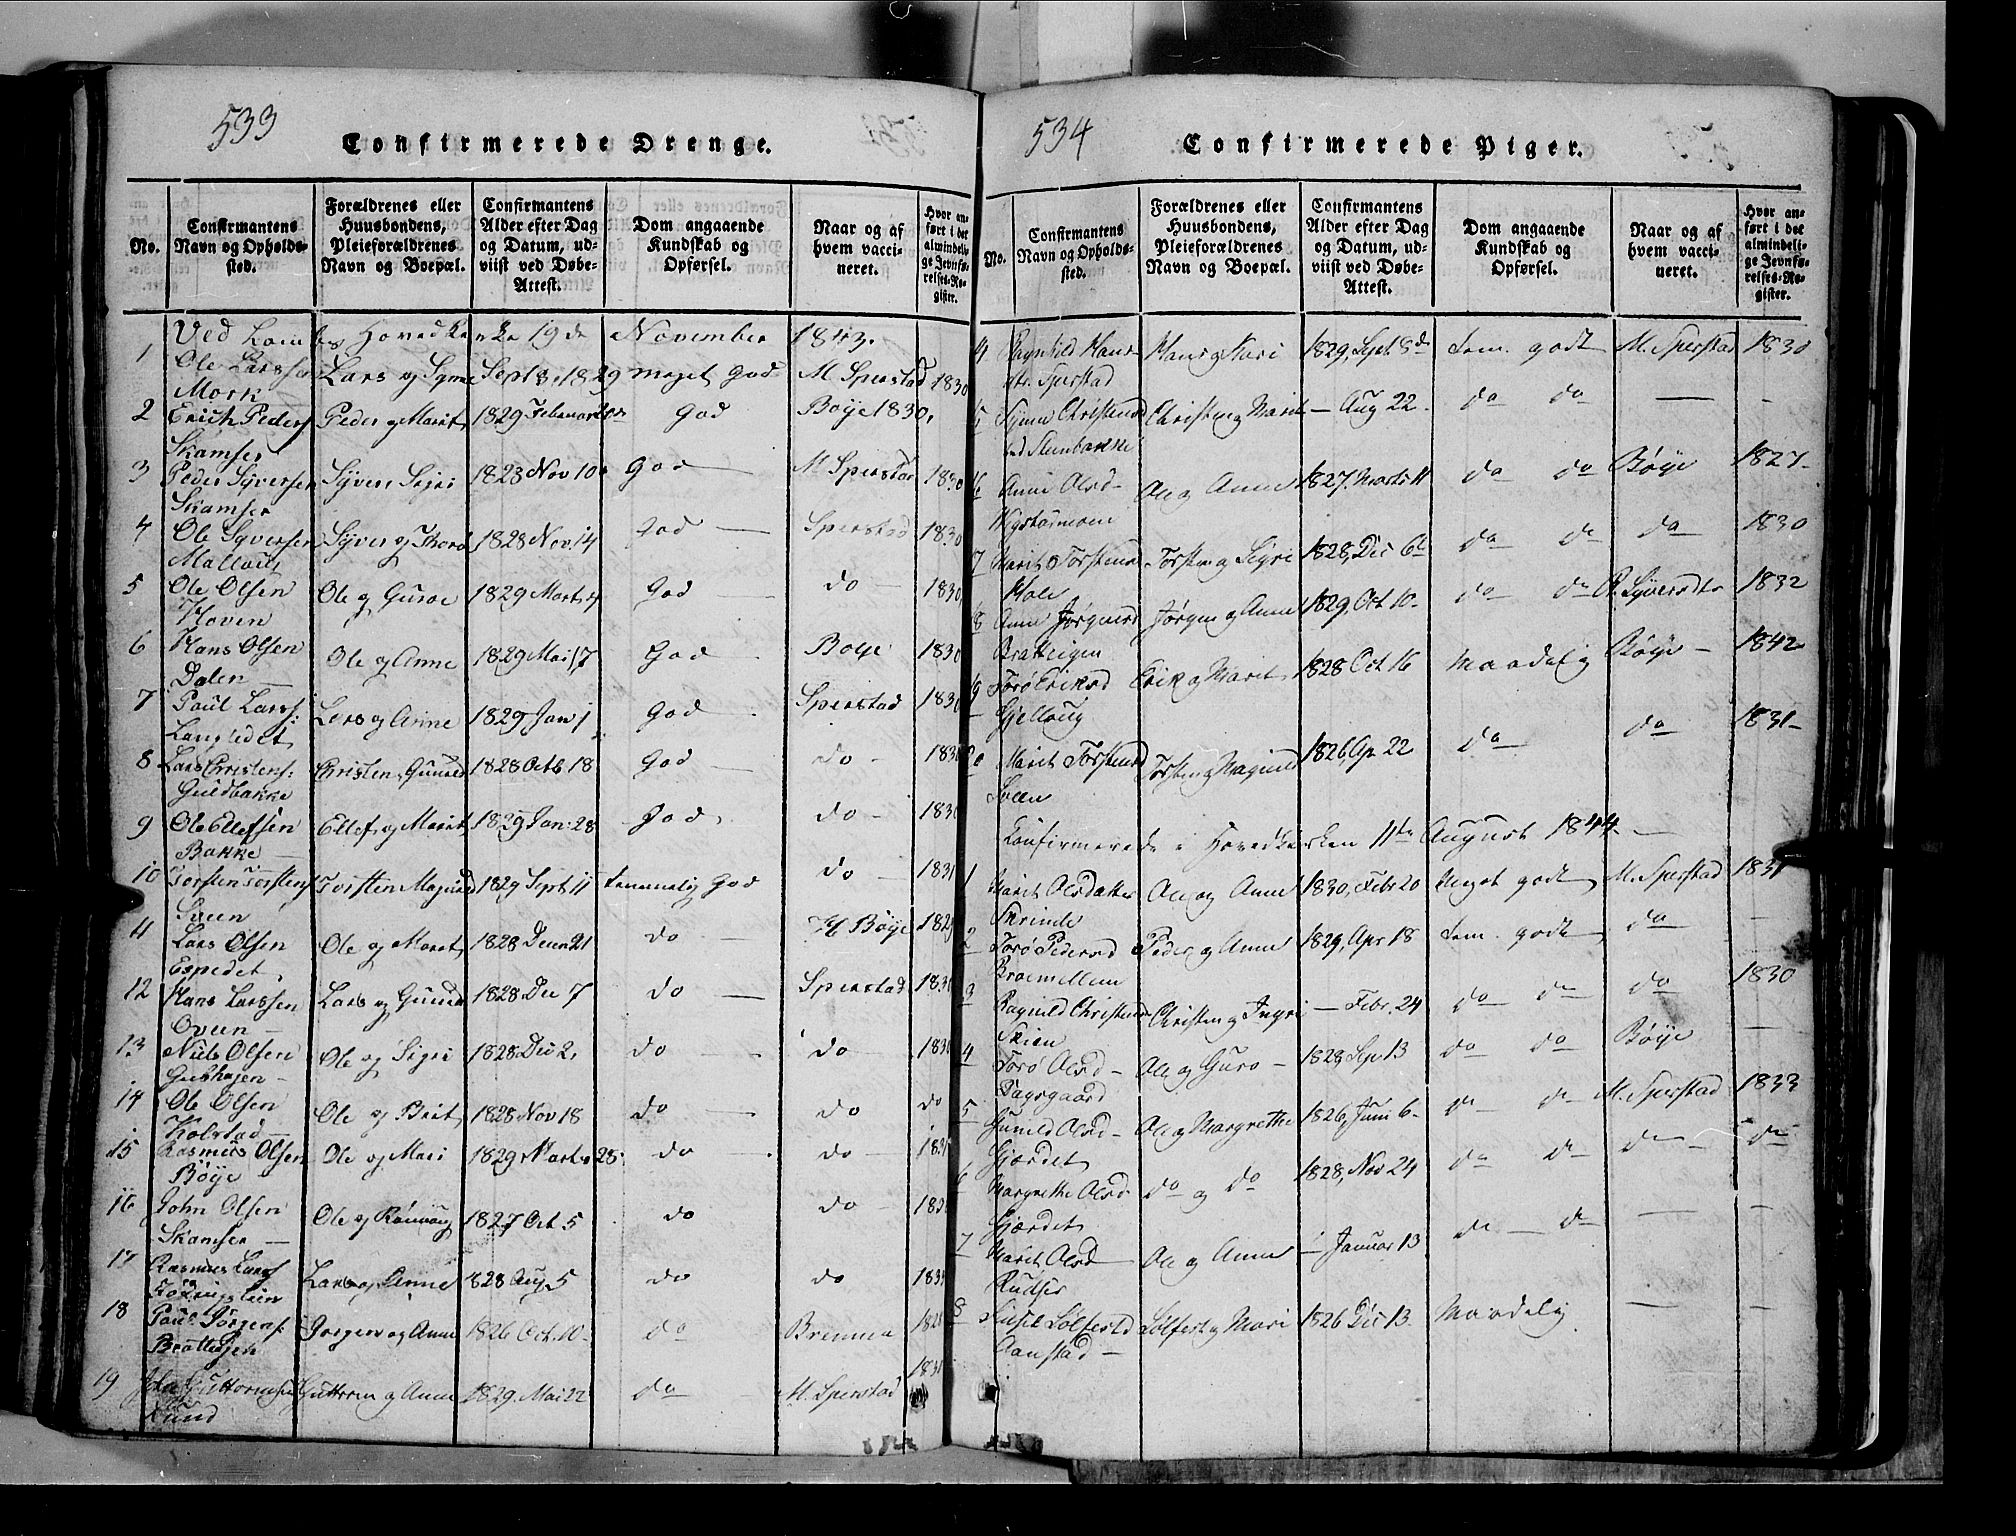 533
Confirmerede Drenge.
No.
Confirmantens Navn og Opholdssted.
Forældrenes eller Huusbondens, Pleieforældrenes Navn og Boepæl.
Confirmantens Alder efter Dag og Datum, udviist ved Døbe-Attest.
Dom angaaende Kundskab og Opførsel.
Naar og af hvem vaccineret.
Hvor anført i det almindelige Jevnførelses-Register.
Ved Lom Hovedkerke 19de November 1843.
1 Ole Larssen Mork Lars og Syne Sept 8. 1829 meget God M Sperstad 1830
2 Erich Peders Skamser Peder og Marit 1829 Februar God Böye 1830,
3 Peder Syversen Skamser Syver Sigri 1823 Nov 10 God M Sperstad 1830
4 Ole Syversen Syver og Thorø 1828 Nov. 14 God — Sperstad 1830
5 Ole Olsen Hoven Ole og Guroe 1829 Mart. 4 God — do — 1830
6 Hans Olsen Dalen — Ole og Anne 1829 Mai 17 God — Boye 1830
7 Paul Larss: Lars og Anne 1829 Jan 1 God Sperstad 1830
8 Lars Christens: Guldbakke Christen, Gunild 1828 Octb 18 God — do — 1830
9 Ole Ellefsen Bakke — Ellef og Marit 1829 Jan: 28 God do — 1830
10 Torsten Torstens Sveen Torsten Magnild 1829 Sept 11 temmelig God do — 1831
11 Lars Olsen Espedet Ole og Maret 1828 Decen 21 do — H Böye 1829
12 Hans Larssen Oveen — Lars og Gunild 1828 Dec 7 do — Sperstad 183
13 Niels Olsen Ole og Sigri 1828 Dec 2, do do — 1830
14 Ole Olsen Kolstad — Ole og Brit 1828 Nov 18 do — do do
15 Rasmus Olsen Böye Ole og Mari 1829 Mart. 28 do do — 183
16 John Olsen Skamser — Ole og Rönnaug 1827 Oct 5 do do 183
17 Rasmus Larss Lars og Anne 1828 Aug 5 do do 183
18 Paul Jörgens. Jorgen og Anne 1826 Oct. 10 do Bremna
19 Guttormsen Sund Guttorm og Anne 1829. Mai 22 do M. Sperstad 183
534
Confirmerede Piger.
No.
Confirmantens Navn og Opholdssted.
Forældrenes eller Huusbondens, Pleieforældrenes Navn og Boepæl.
Confirmantens Alder efter Dag og Datum, udviist ved Døbe-Attest.
Dom angaaende Kundskab og Opførsel.
Naar og af hvem vaccineret.
Hvor anført i det almindelige Jevnførelses-Register.
4 Ragnhild Hansdtr. Sperstad Hans og Mari 1829, Sept. 8de tem. godt M. Sperstad 1830
5 Christensd Christen og Marit — Aug 22 do do — —
6 Anne Olsd — Ole og Anne 1827. Marts 11 do do Böye 1827
7 Marit Torstensd Torsten og Sigri 1828, Dec 6te do do do 1830
8 Anne Jørgensd Jørgen og Anne 1829, Oct 10 do do Syversdtr 1832
9 Torö Eriksd Erik og Marit 1828 Oct 16 Maadelig Böye — 1842
20 Marit Torstensd Sveen Torsten og Magnild 1826, Ap 22 do do 1831
Konfirmerede i Hovedkirken 11te August 1844. —
1 Marit Olsdatter Skrinde Ole og Anne 1830, Febr 20 Meget godt M. Sperstad 1831
2 Torö Pedersd Peder og Anne 1829, Apr 18 tem. godt do —
3 Ragnild Christensd Skien Christen og Ingri — Febr. 24 do do do 1830
4 Torö Olsd — Dagsgaard Ole og Guro — 1828, Sep 13 do do Böye —
5 Gunild Olsd — Gjerdet Ole og Margrethe 1826, Juni 6 do do M. Sperstad 1833
6 Margrethe Olsd Gjerdet do og do 1828, Nov 24 do do do do
7 Marit Olsd Rudser Ole og Anne — Januar 13 do — do — —
8 Sølfestd Aanstad — Sølfest og Mari 1826 Dec 13 Maadelig — —